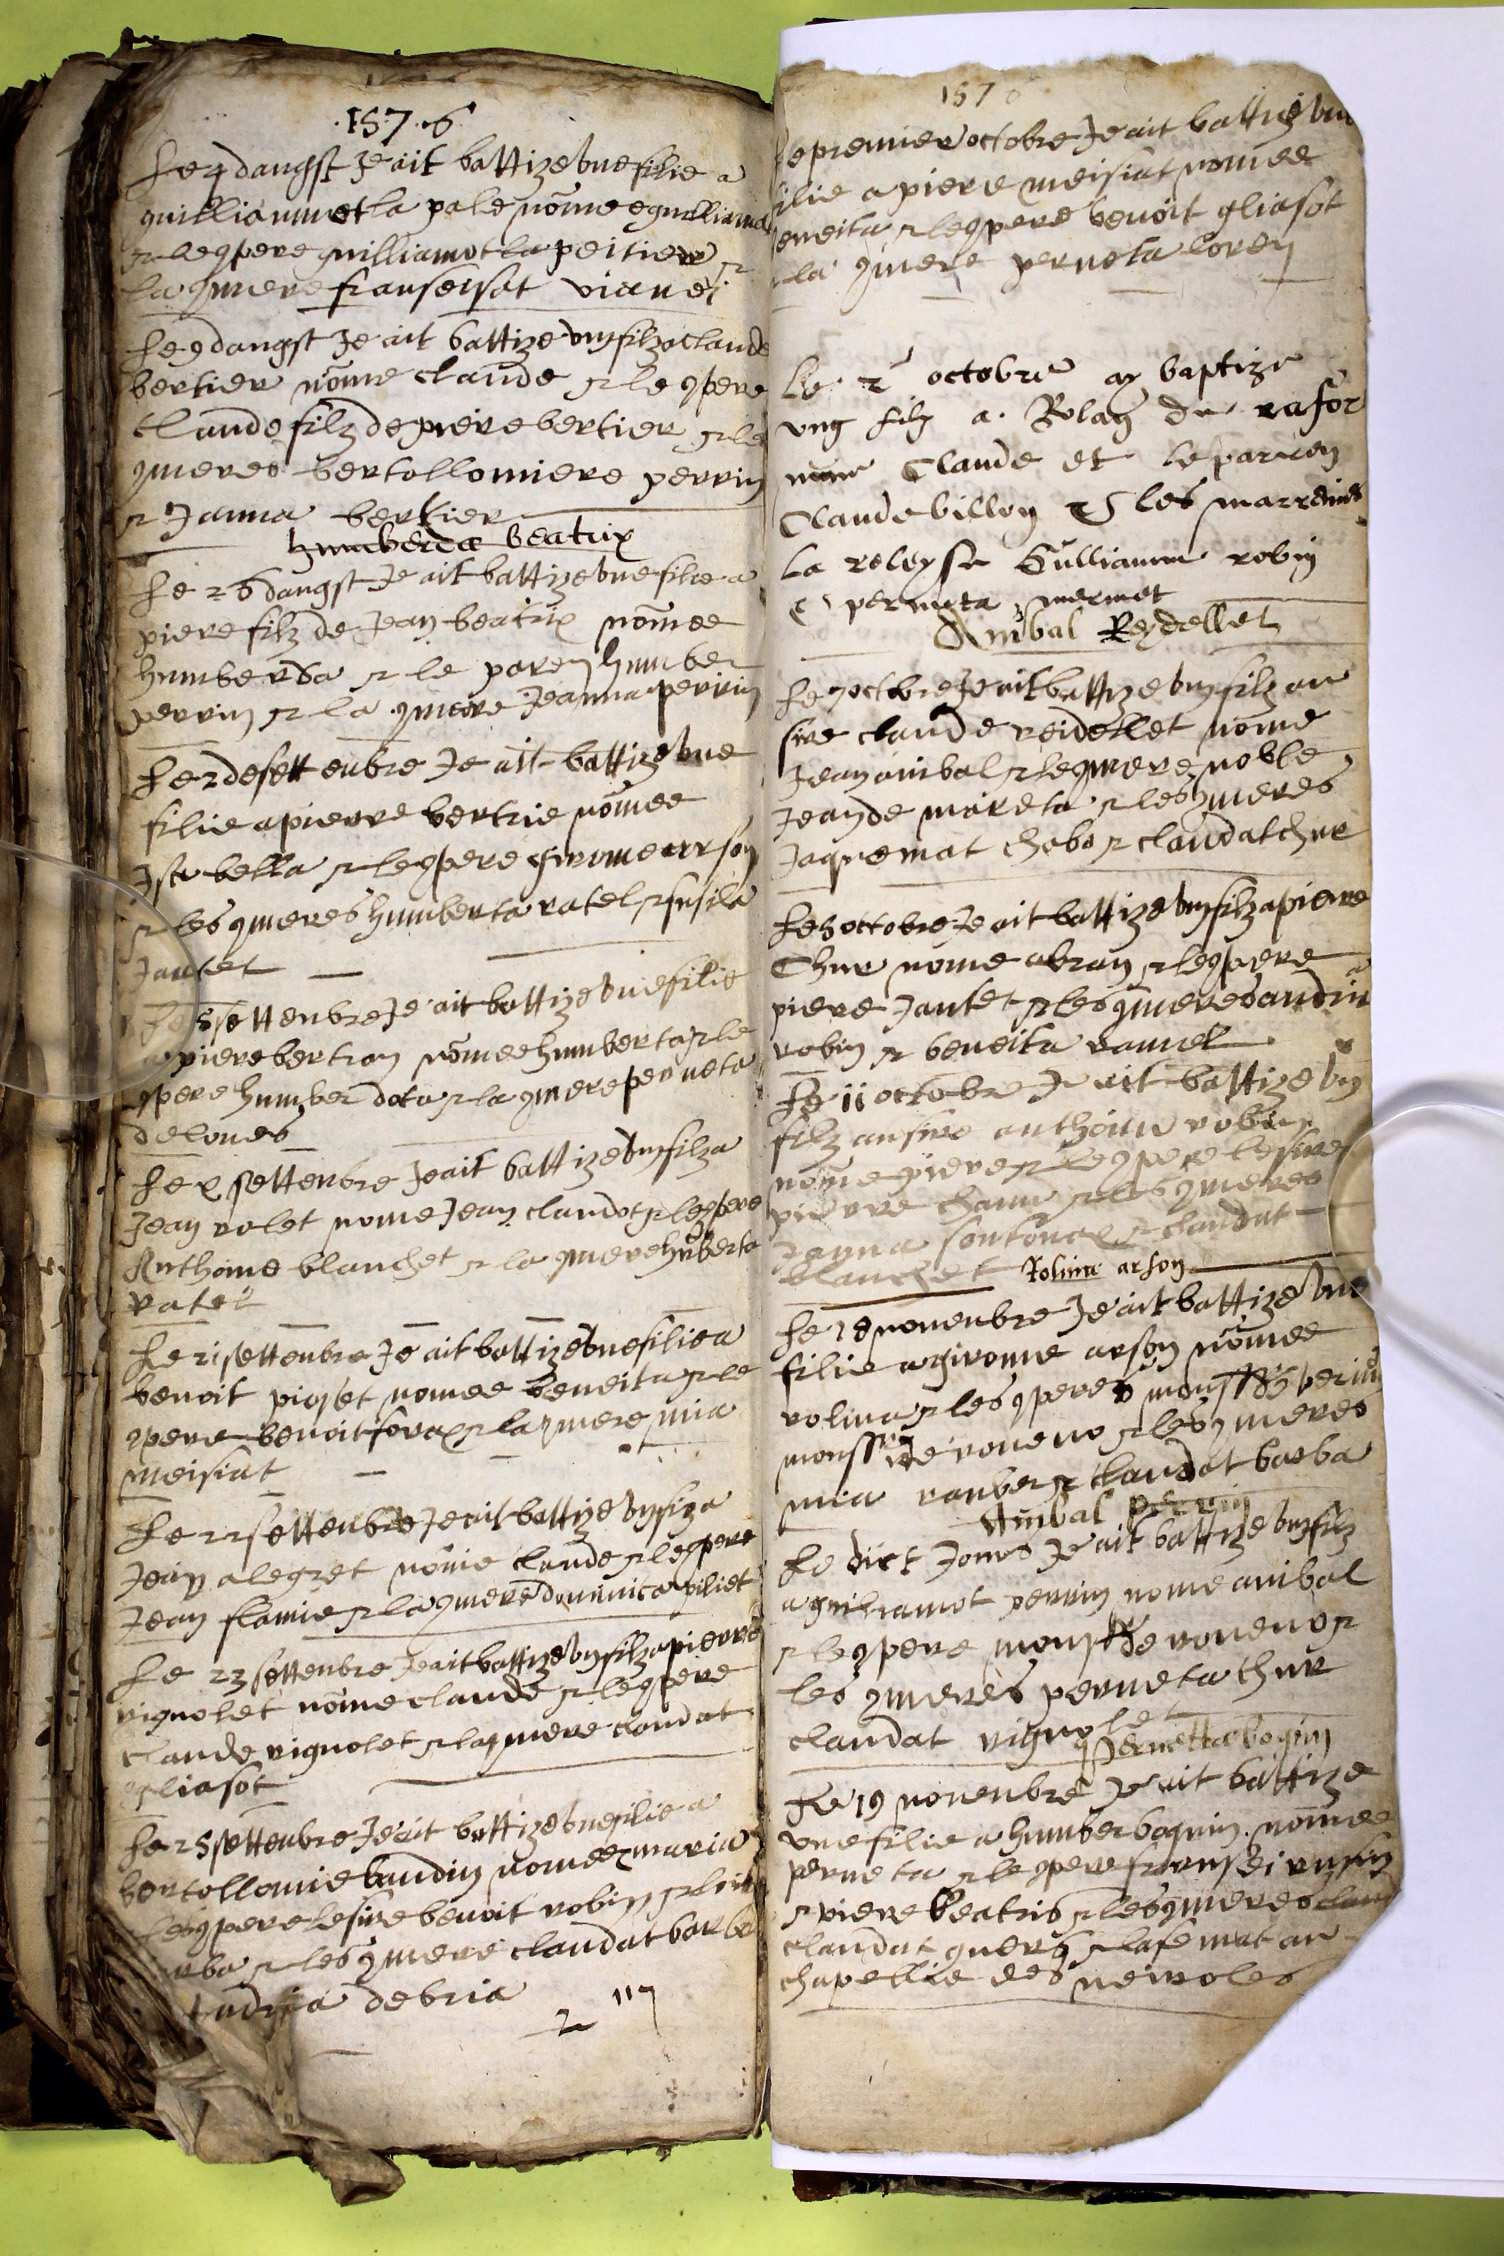 .157.6
Le 4 daugst Je ait battize une filie a
guilliaumet la pale nomee guilliama
et le cpere guilliamot la peitier et
la cmere franseisat vianei
Le 9 daugst Je ait battize ung filz a claude
bertier nome claude et le cpere
claude filz de piere bertier et les
cmeres bertollomiere perrin
et Janna bertier
humberda beatrix
Le 26 daugst Je ait battize une filie a
piere filz de Jean beatrix nomee
humberda et le paren humber
perrin et la cmere Jeanna perrin
Le 2 de settenbre Je ait battize une
filie a pierre bertrie nomee
Isabella et le cpere girome arson
et les cmeres humberta ratel et
Jantet
Le 5 settenbre Je ait battize une filie
a piere bertran nomee humberta et le
cpere humber dota et la cmere perneta
deloues
Le x settenbre Je ait battize ung filz a
Jean rolet nome Jean claudot et le cpere
Anthoine blanchet et la cmere huberta
ratel
Le 21 settenbre Je ait battize une filie a
benoit pioset nomee beneita et le
cpere benoit forax et la cmere mia
meisiat
Le 22 settenbre Je ait battize ung filz a
Jean alegret nome claude et le cpere
Jean flamie et la cmere dominica piliet
Le 23 settenbre Je ait battize ung filz a pierre
vignolet nome claude et le cpere
claude vignolet et la cmere claudat
gliasot
Le 25 settenbre Je ait battize une filie a
bertollomie baudin nomee maria
le cpere le sire benoit robin et
et les cmere claudat barba
debria
117
157
Le premier octobre Je ait battize une
filie a piere meisiat nomee
beneita et le cpere benoit gliasot
la cmere perneta loren
Le 2 octobre ay baptize
ung filz a Rolan du rafor
nome Claude et le parren
Claude billon et les marreines
la roleyse Gulliaume robin
et perneta mermet
Anibal Reydellet
Le 7 octobre Je ait battize ung filz au
sire claude reidellet nome
Jean anibal et le cmere noble
Jean de mareta et les cmeres
Jaquemat chabo et claudat chur
Le 8 octobre Je ait battize ung filz a piere
Chur nome abran et le cpere
piere Jantet et les cmeres andria
robin et beneita ramel
Le 11 octobre Je ait battize ung
filz au sire anthoine robin
nome piere et le cpere le sire
pierre chanu et les cmeres
Janna sontonax et claudat
blanchet
Rolina arson
Le 18 novenbre Je ait battize une
filie a girome arson nomee
rolina et les cperes monssr de
monssr de roueno et les cmeres
mia ranber et claudat barba
Anibal perrin
Le dict Jours Je ait battize ung filz
a guiliamot perrin nome anibal
et le cpere monssr de roueno et
les cmeres perneta chur
claudat vignolet
Pernetta boquin
Le 19 novenbre Je ait battize
une filie a humber boquin nomee
perneta et le cpere fransei
et piere beatris et les cmeres
claudat et la femat au
chapellie des neiroles